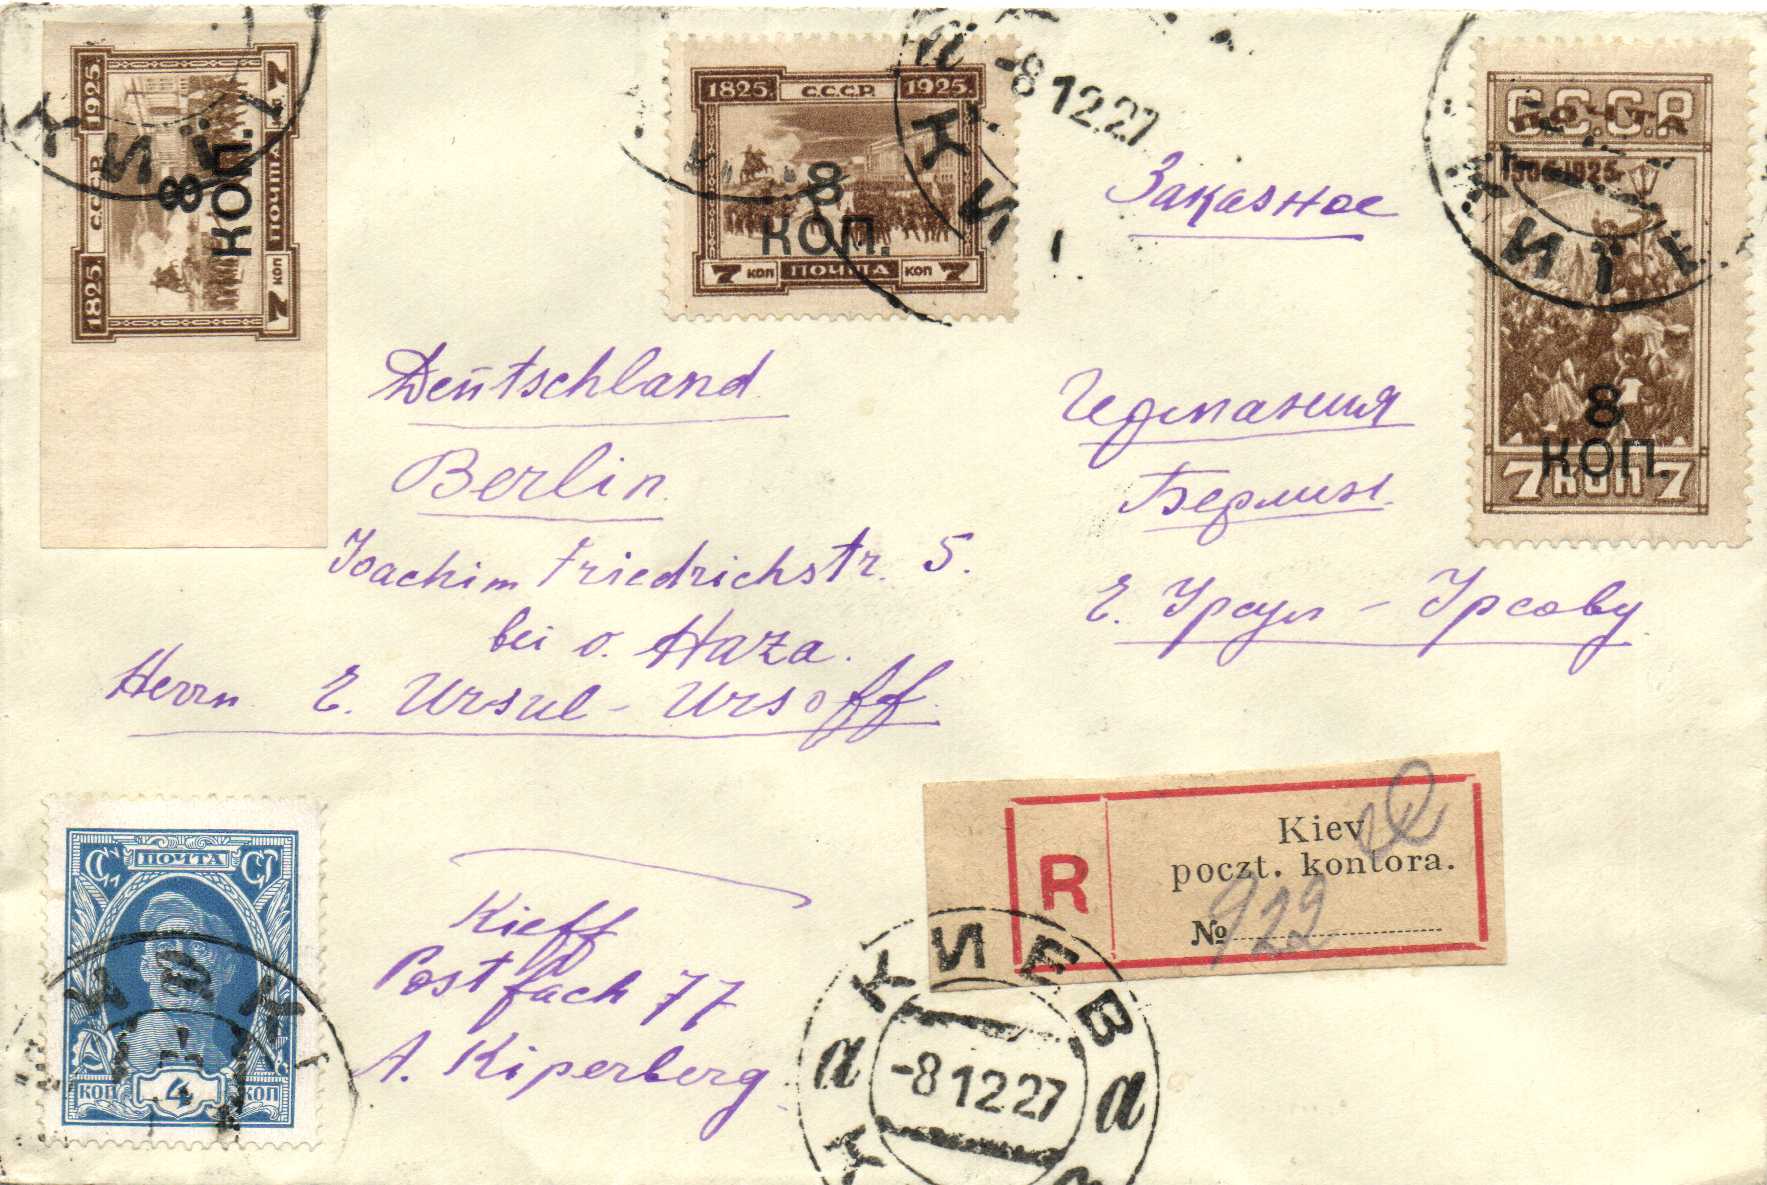 1825. С.С.С.Р. 1925.
7 КОП ПОЧТА КОП 7
8
КОП.
1825. С.С.С.Р. 1925.
8
КОП.
7 КОП ПОЧТА КОП 7
КИЇ
-8 12.27
С.С.С.Р
ПОЧТА
1905-1925.
8
КОП.
7 КОП 7
КИЇ
Заказное
Deutschland
Berlin
Joachim Friedrichstr. 5.
bei v. Haza.
Herrn E. Ursul-Ursoff.
Германия
Берлин.
Е. Урсул-Урсову.
ПОЧТА
КОП 4 КОП
Kieff
Postfach 77
A. Kiperberg
R
Kiev
poczt. kontora.
№ 922
КИЕВ
а -8 12 27 а